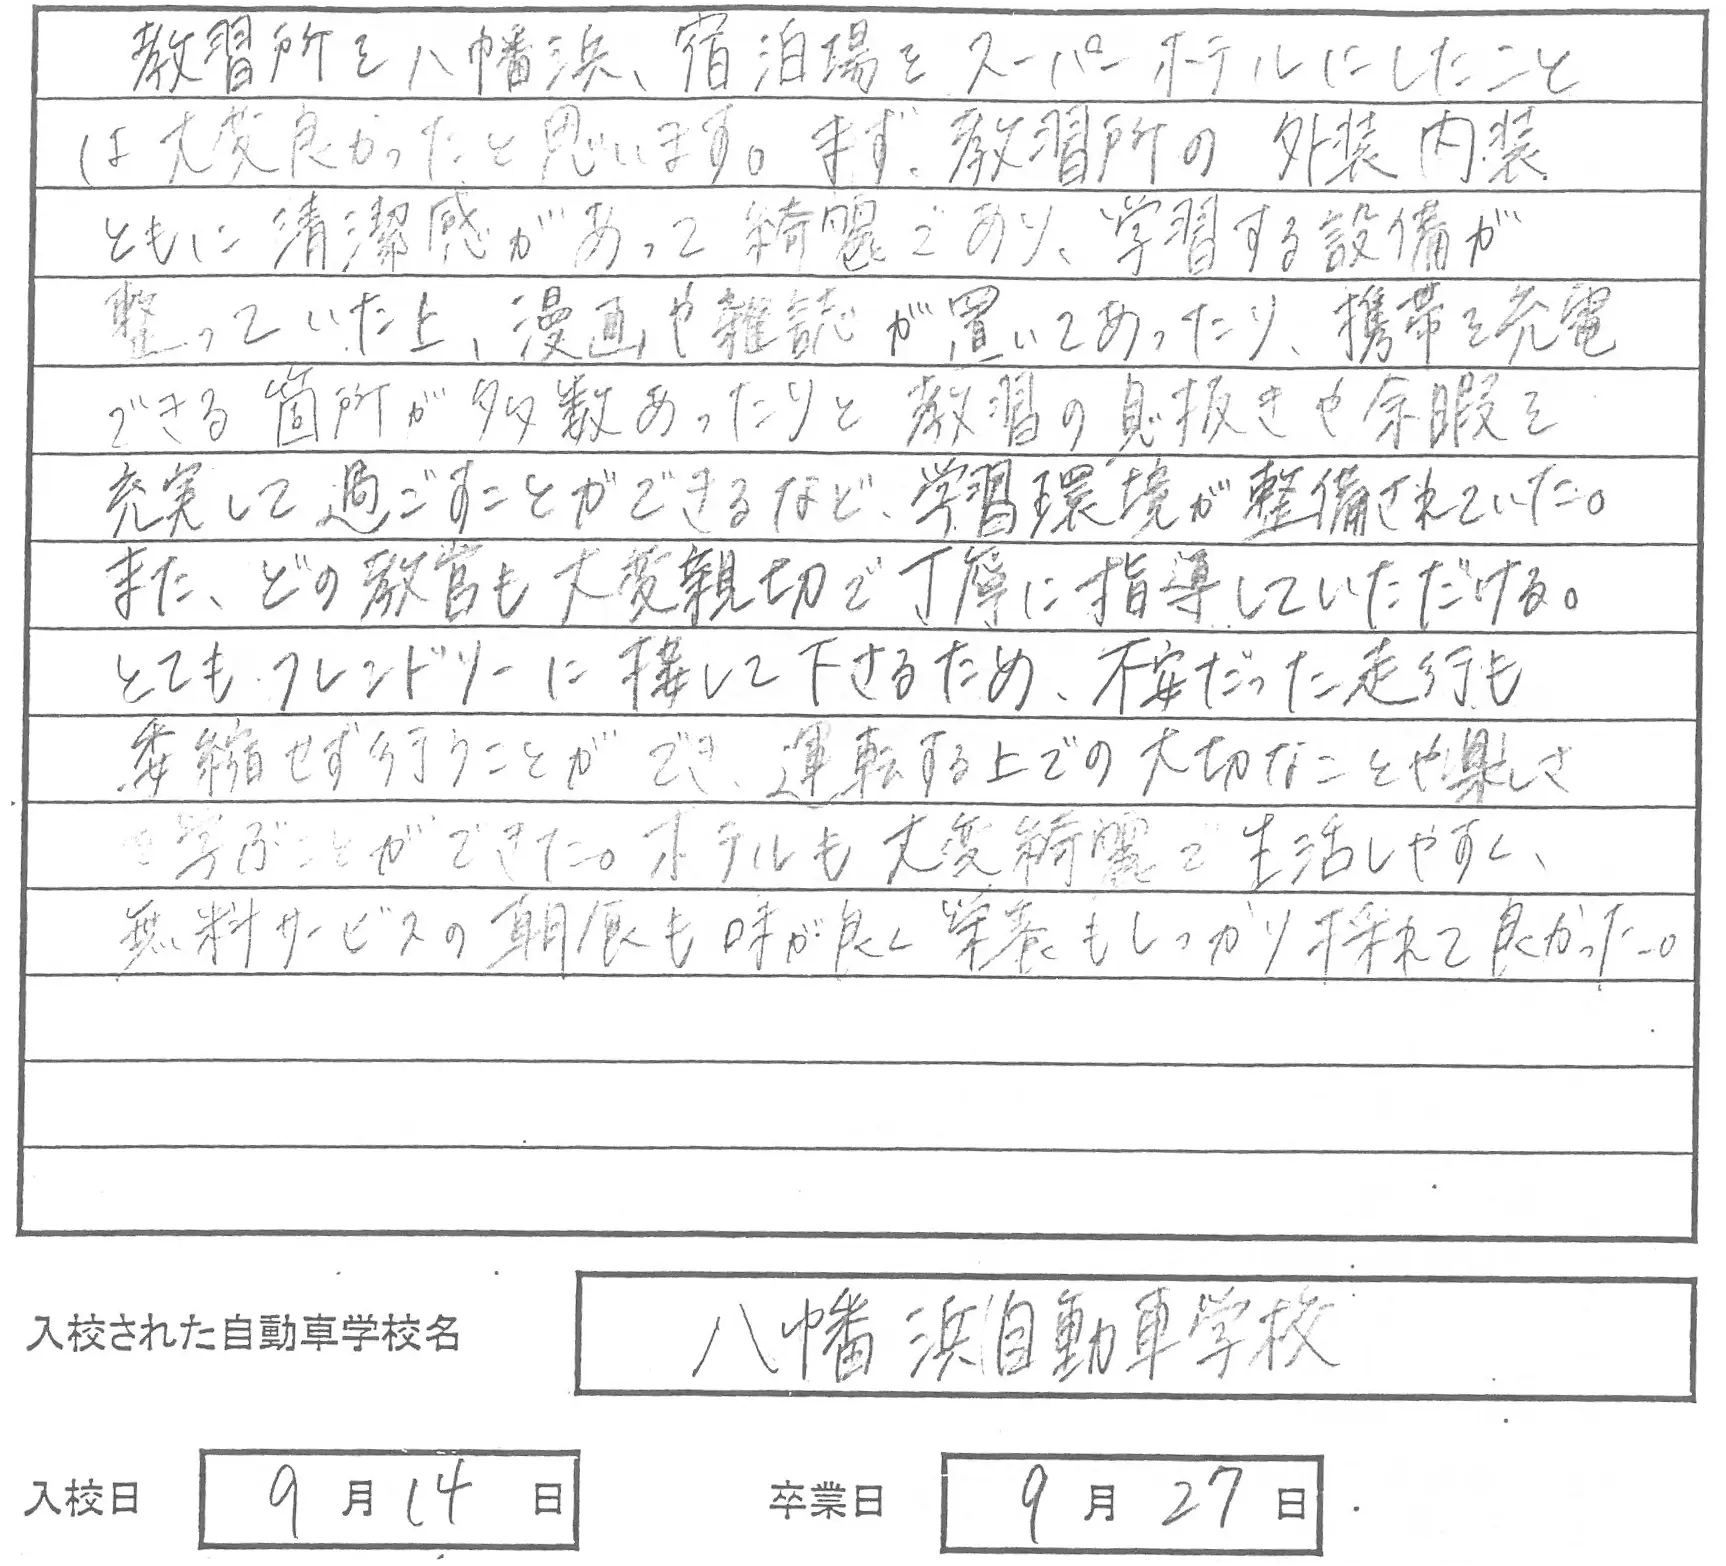 教習所を八幡浜、宿泊場をスーパーホテルにしたこと
は大変良かったと思います。まず、教習所の外装内装
ともに清潔感があって綺麗であり、学習する設備が
整っていた上、漫画や雑誌が置いてあったり、携帯を充電
できる箇所が多数あったりと教習の息抜きや余暇を
充実して過ごすことができるなど、学習環境が整備されていた。
また、どの教官も大変親切で丁寧に指導していただける。
とてもフレンドリーに接して下さるため、不安だった走行も
委縮せず行うことができ、運転する上での大切なことや楽しさ
を学ぶことができた。ホテルも大変綺麗で生活しやすく、
無料サービスの朝食も味が良く栄養もしっかり採れて良かった。
入校された自動車学校名 八幡浜自動車学校
入校日 9月14日 卒業日 9月27日